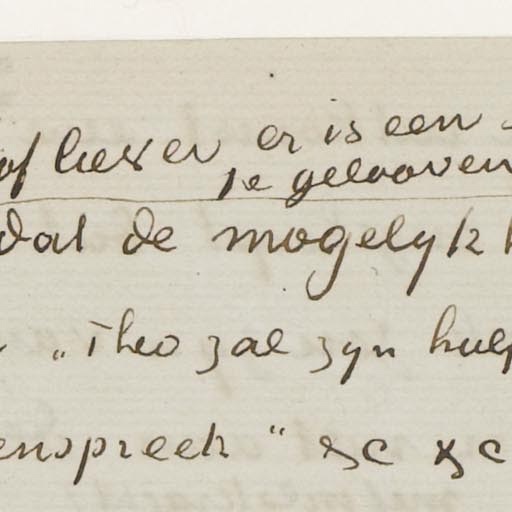 of liever er is een
te gelooven
dat de mogelykh
„Theo zal zyn hulp
enspreek" &c &c